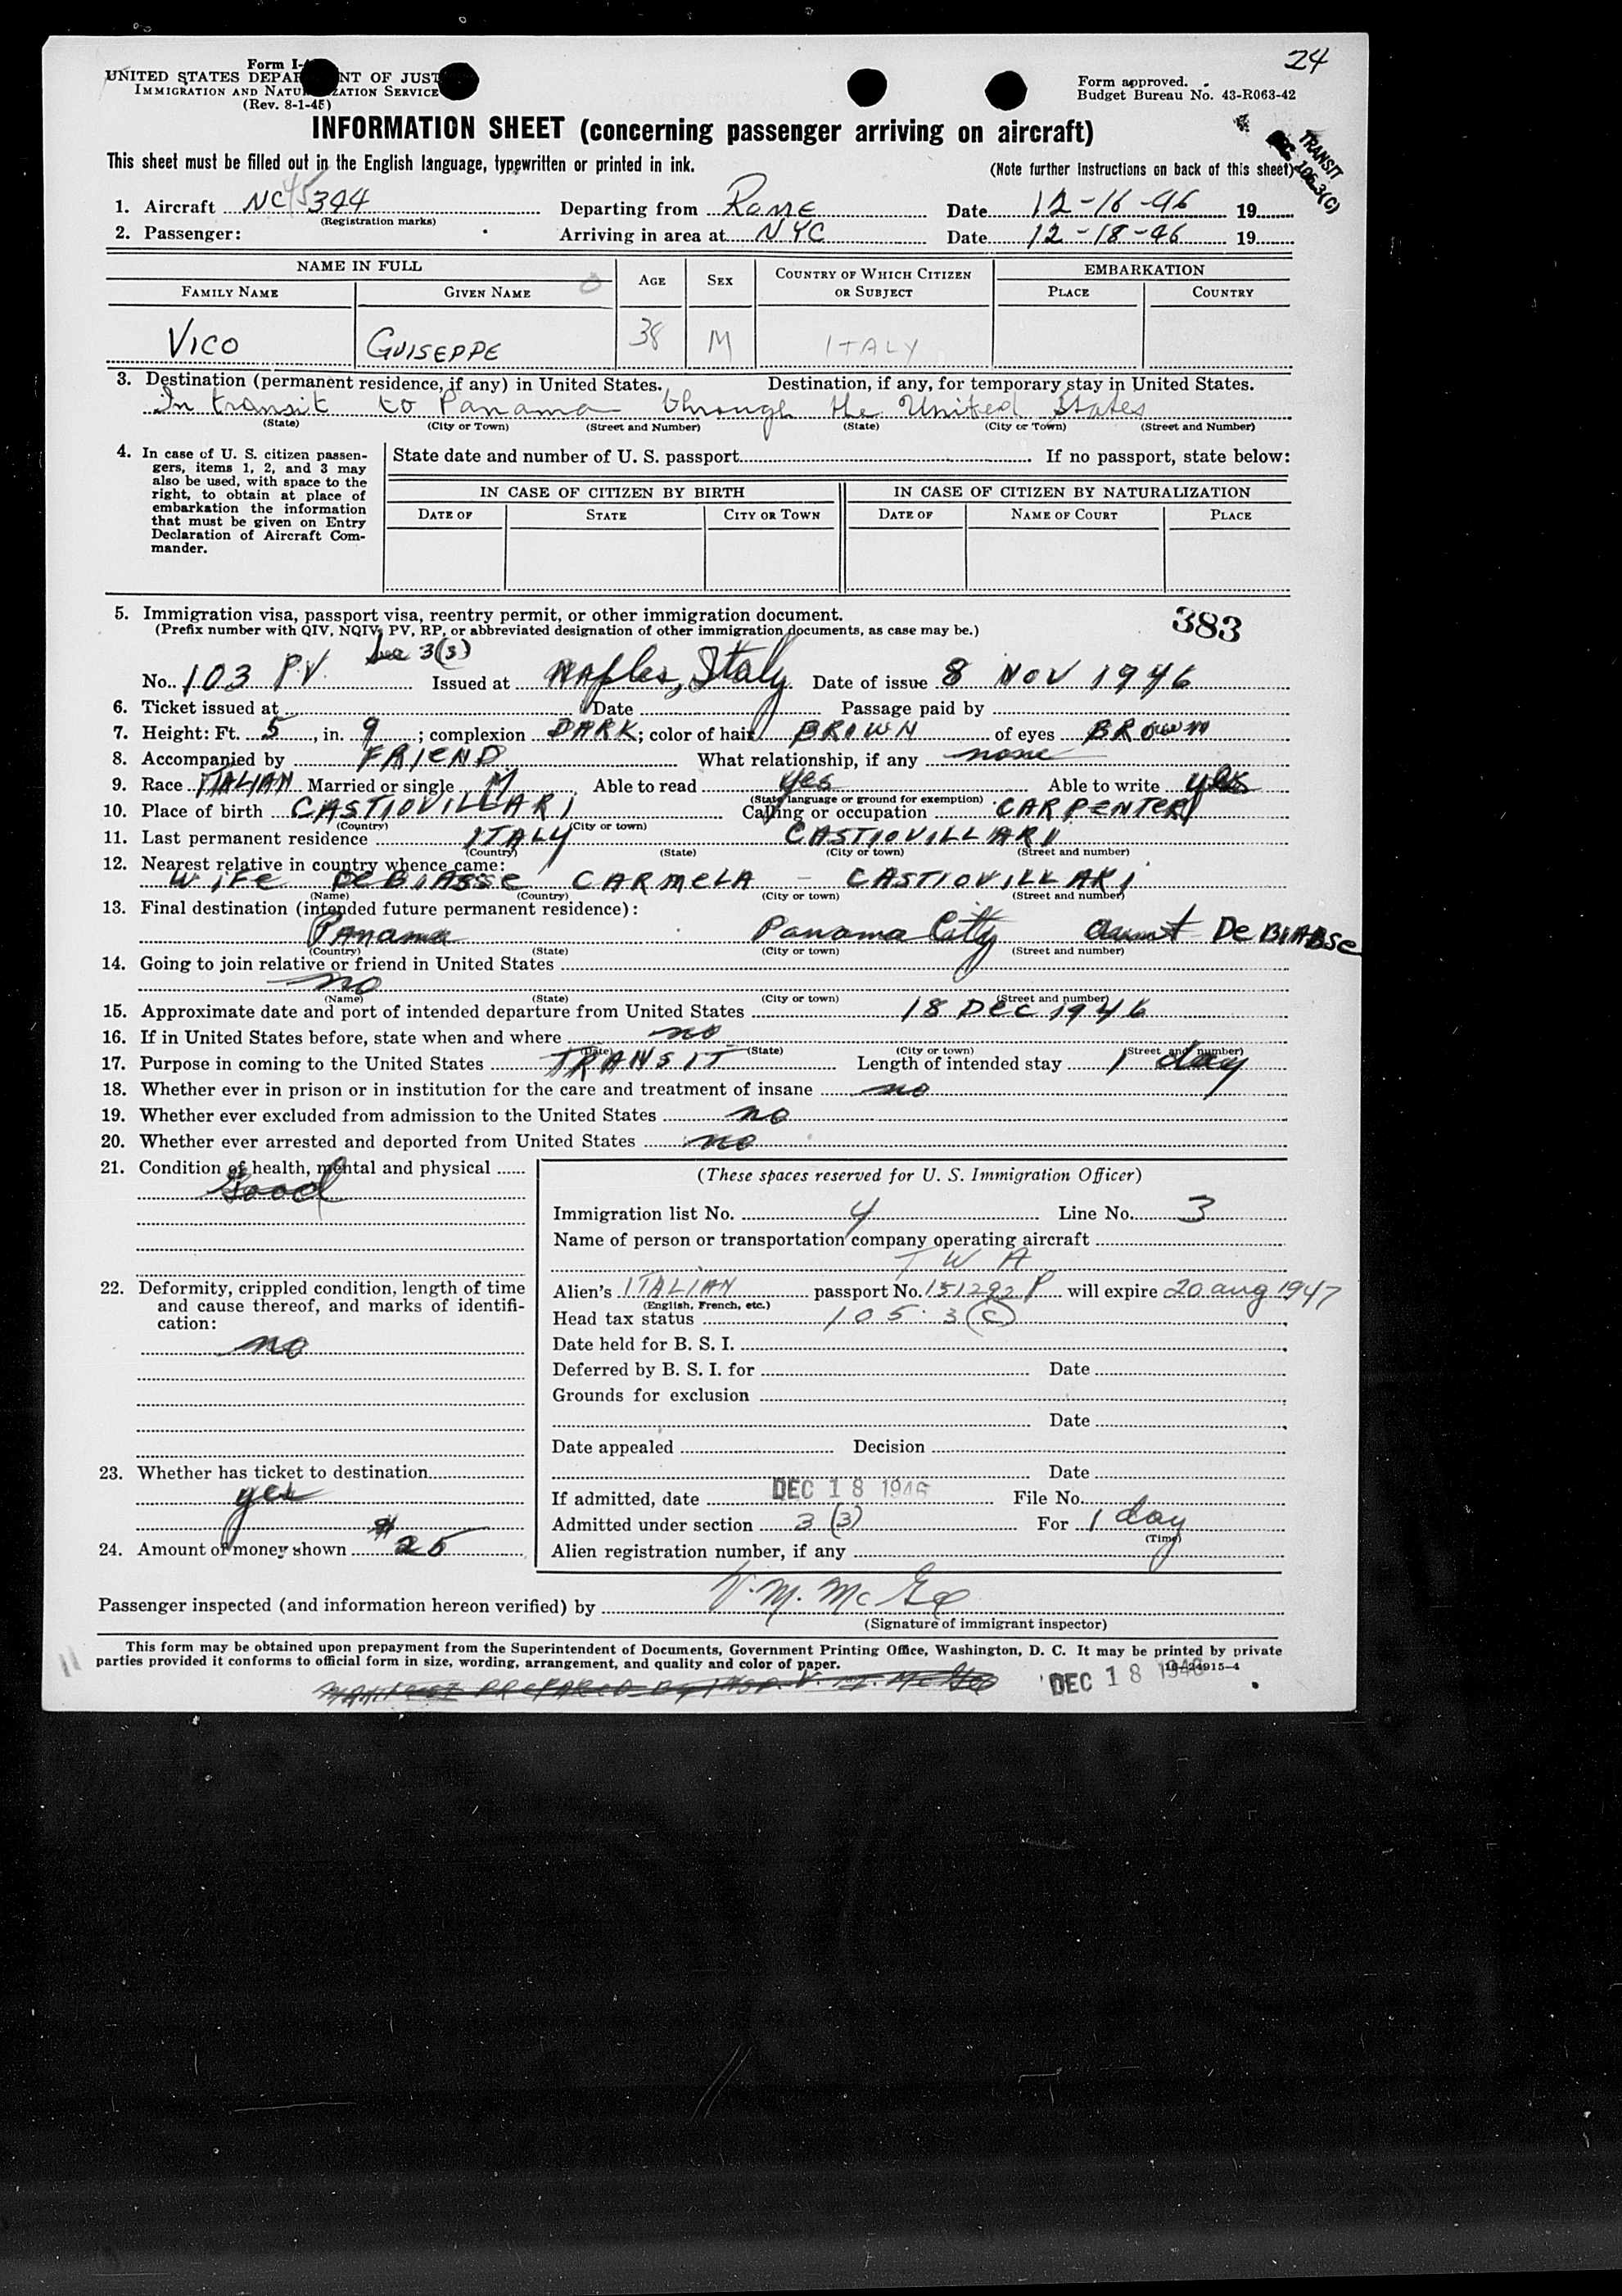 24
Form I-
UNITED STATES DEPAR NT OF JUST
IMMIGRATION AND NATU ZATION SERVICE
(Rev. 8-1-45)
Form approved.
Budget Bureau No. 43-R063-42
INFORMATION SHEET (concerning passenger arriving on aircraft)
TRANSIT
106.3(C)
This sheet must be filled out in the English language, typewritten or printed in ink. (Note further instructions on back of this sheet)
1. Aircraft NC 45394 Departing from Rome Date 12-16-46 19
(Registration marks)
2. Passenger: Arriving in area at NYC Date 12-18-46 19
NAME IN FULL AGE SEX COUNTRY OF WHICH CITIZEN OR SUBJECT EMBARKATION
FAMILY NAME GIVEN NAME PLACE COUNTRY
VICO GUISEPPE 38 M ITALY
3. Destination (permanent residence, if any) in United States. Destination, if any, for temporary stay in United States.
In transit to Panama through the United States
(State) (City or Town) (Street and Number) (State) (City or Town) (Street and Number)
4. In case of U. S. citizen passen-
gers, items 1, 2, and 3 may
also be used, with space to the
right, to obtain at place of
embarkation the information
that must be given on Entry
Declaration of Aircraft Com-
mander.
State date and number of U. S. passport If no passport, state below:
IN CASE OF CITIZEN BY BIRTH IN CASE OF CITIZEN BY NATURALIZATION
DATE OF STATE CITY OR TOWN DATE OF NAME OF COURT PLACE
5. Immigration visa, passport visa, reentry permit, or other immigration document.
(Prefix number with QIV, NQIV, PV, RP, or abbreviated designation of other immigration documents, as case may be.)
383
Sec 3(3)
No. 103 PV. Issued at Naples, Italy Date of issue 8 NOV 1946
6. Ticket issued at Date Passage paid by
7. Height: Ft. 5, in. 9; complexion DARK; color of hair BROWN of eyes BROWN
8. Accompanied by FRIEND What relationship, if any none
9. Race ITALIAN Married or single M Able to read yes Able to write yes
(State language or ground for exemption)
10. Place of birth CASTIOVILLARI Calling or occupation CARPENTER
(Country) (City or town)
11. Last permanent residence ITALY CASTIOVILLARI
(Country) (State) (City or town) (Street and number)
12. Nearest relative in country whence came:
WIFE DEBIASSE CARMELA - CASTIOVILLARI
(Name) (Country) (City or town) (Street and number)
13. Final destination (intended future permanent residence):
Panama Panama City aunt DE BIABSE
(Country) (State) (City or town) (Street and number)
14. Going to join relative or friend in United States
no
(Name) (State) (City or town) (Street and number)
15. Approximate date and port of intended departure from United States 18 DEC 1946
16. If in United States before, state when and where no
(Date) (State) (City or town) (Street and number)
17. Purpose in coming to the United States TRANSIT Length of intended stay 1 day
18. Whether ever in prison or in institution for the care and treatment of insane no
19. Whether ever excluded from admission to the United States no
20. Whether ever arrested and deported from United States no
21. Condition of health, mental and physical
Good
22. Deformity, crippled condition, length of time
and cause thereof, and marks of identifi-
cation:
no
23. Whether has ticket to destination
yes
24. Amount of money shown $25
(These spaces reserved for U. S. Immigration Officer)
Immigration list No. 4 Line No. 3
Name of person or transportation company operating aircraft
TWA
Alien's ITALIAN passport No. 151292 P will expire 20 aug 1947
(English, French, etc.)
Head tax status 105.3(C)
Date held for B. S. I.
Deferred by B. S. I. for Date
Grounds for exclusion
Date
Date appealed Decision
Date
If admitted, date DEC 18 1946 File No.
Admitted under section 3 (3) For 1 day
(Time)
Alien registration number, if any
Passenger inspected (and information hereon verified) by V. M. McGee
(Signature of immigrant inspector)
This form may be obtained upon prepayment from the Superintendent of Documents, Government Printing Office, Washington, D. C. It may be printed by private
parties provided it conforms to official form in size, wording, arrangement, and quality and color of paper. 16-24915-4
MANIFEST PREPARED BY INSP. V. M. McGee
DEC 18 1946